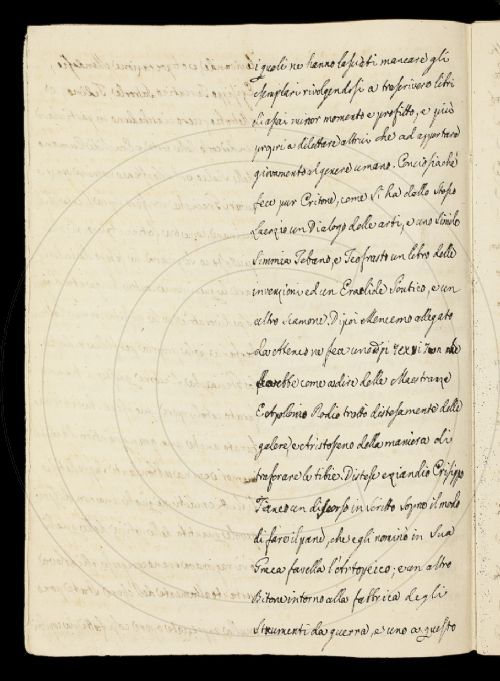 i quali ne hanno lasciati mancare gli
esemplari rivolgendosi a trascrivere libri
di assai minor momento e profitto, e più
proprj a dilettare altrui che ad apportare
giovamento al genere umano. Conciosiache
fece pur Critone, come si ha dallo stesso
Laerzio un Dialogo delle arti, e uno Simile
Simmia Tebano, e Teofrasto un libro delle
invenzioni ed un Eraclide Pontico, e un
altro Dipoi Menecmo allegato
da Ateneo ne fea uno πρὶ τεχνιτῶν che
sarebbe come a dire delle Maestranze
E Apolonio Rodio trattò distesamente delle
galere, e Aristosseno della maniera di
traforare le tibie. Distese eziandio Crisippo
Tianeo un discorso in scritto sopra il modo
di fare il pane, che egli nominò in Sua
Greca favella l'Artopeico; e un altro
Bitone intorno alla fabbrica degli
Strumenti da guerra, e uno a questo